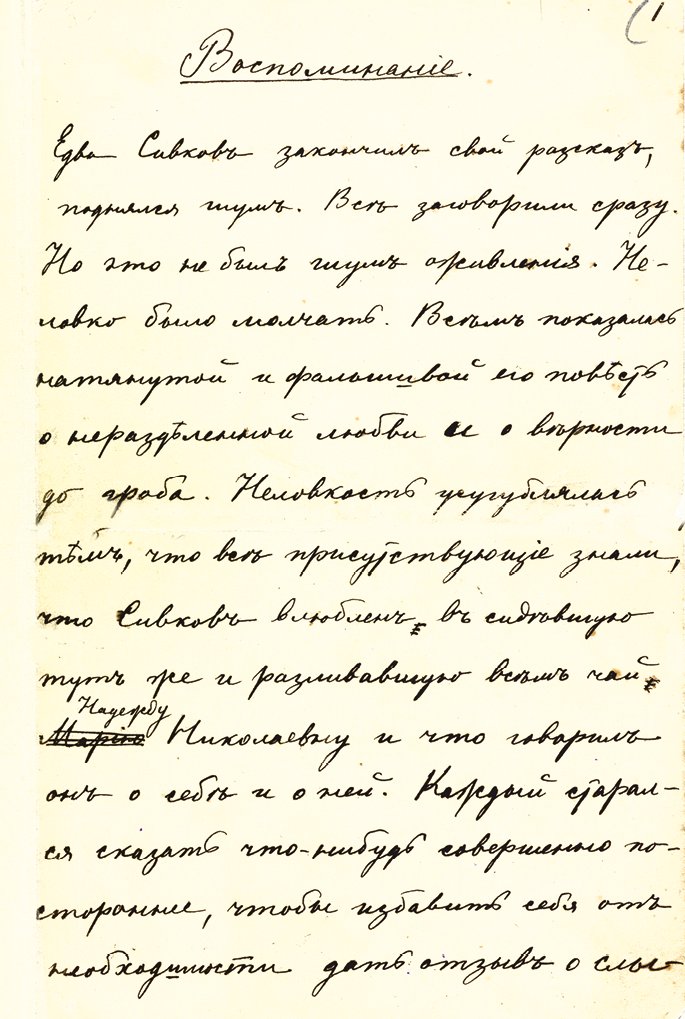 1
Воспоминаніе.
Едва Сивковъ закончилъ свой разсказъ,
поднялся шумъ. Всѣ заговорили сразу.
Но это не былъ шумъ оживленія. Не-
ловко было молчать. Всѣмъ показалась
натянутой и фальшивой его повѣсть
о нераздѣленной любви и о вѣрности
до гроба. Неловкость усугублялась
тѣмъ, что всѣ присутствующіе знали,
что Сивковъ влюбленъ въ сидѣвшую
тутъ же и разливавшую всѣмъ чай
Надежду
Марію Николаевну и что говорилъ
онъ о себѣ и о ней. Каждый старал-
ся сказать что-нибудь совершенно по-
стороннее, чтобы избавить себя отъ
необходимости дать отзывъ о слы-